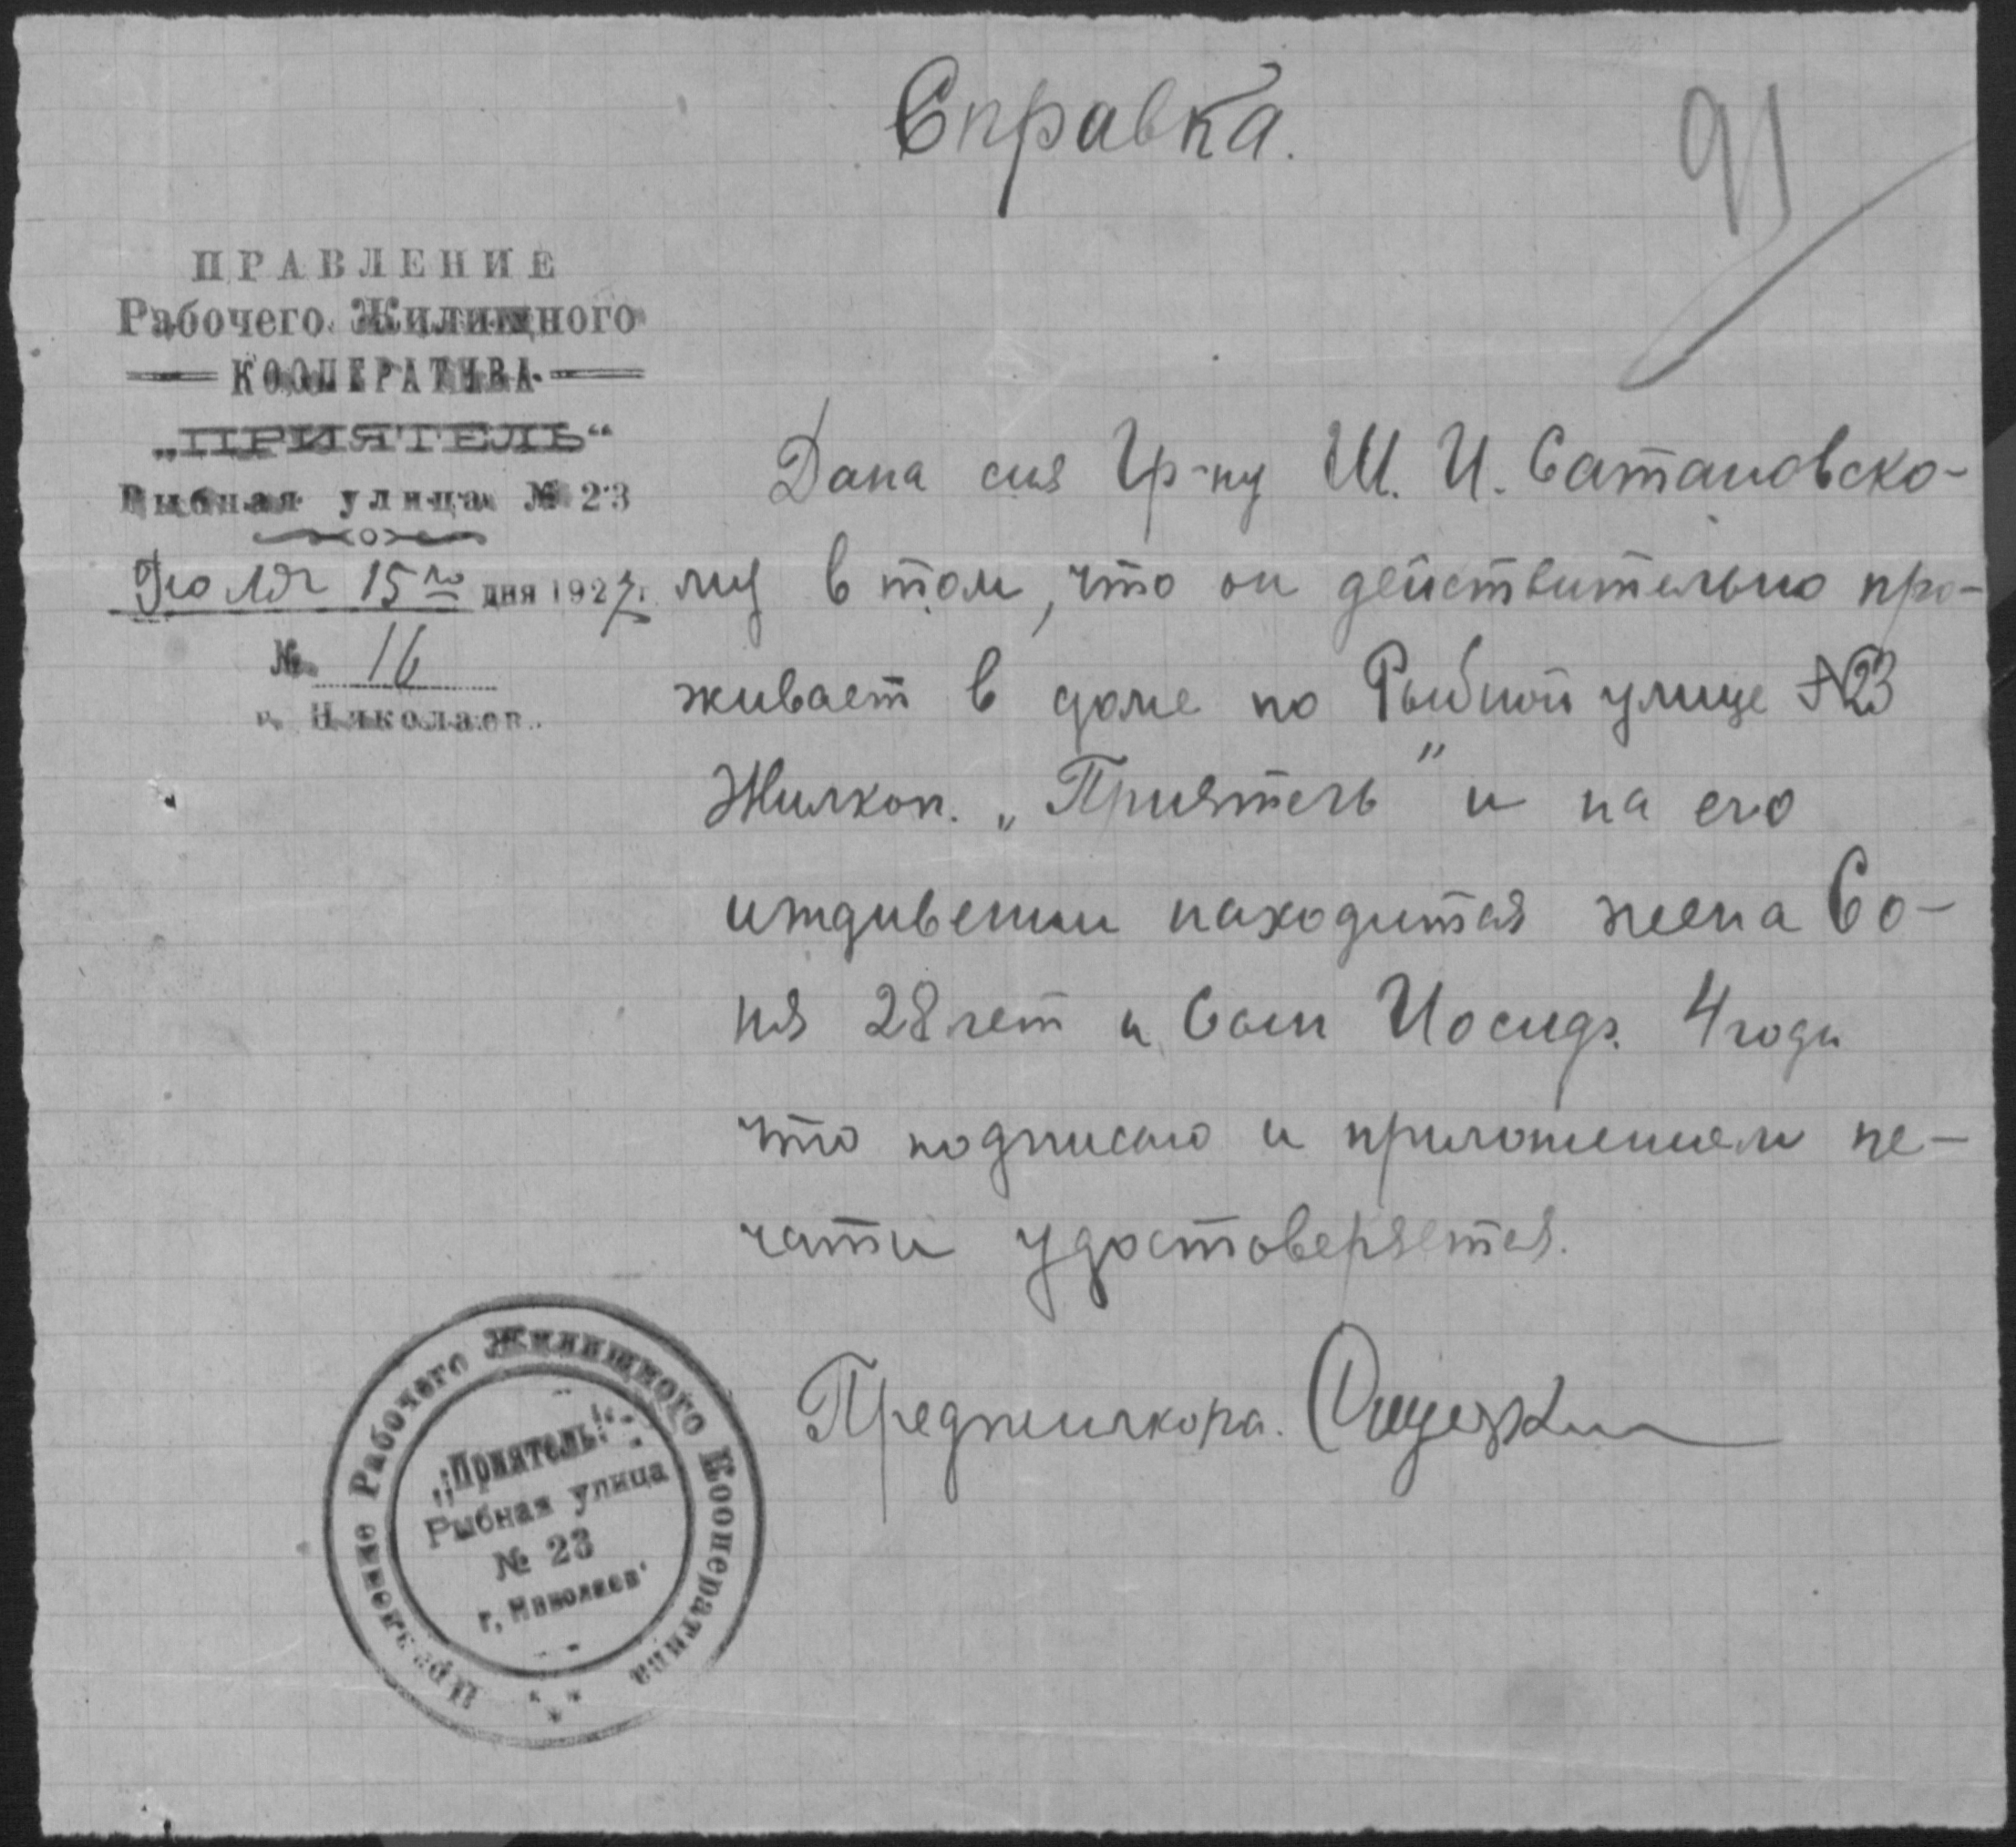 Справка.
91
ПРАВЛЕНИЕ
Рабочего Жилищного
КООПЕРАТИВА
„ПРИЯТЕЛЬ“
Рыбная улица № 23
Июля 15го дня 1927 г.
№ 16
г. Николаев.
Дана сия Гр-ну Ш. И. Сатановско-
му в том, что он действительно про-
живает в доме по Рыбной улице №23
Жилкоп. „Приятель" и на его
иждивении находится жена Со-
ня 28 лет и Сын Иосиф. 4 годи
что подписью и приложением пе-
чати удостоверяется.
Преджилкопа.
Правление Рабочего Жилищного Кооператива
„Приятель“
Рыбная улица
№ 23
г. Николаев